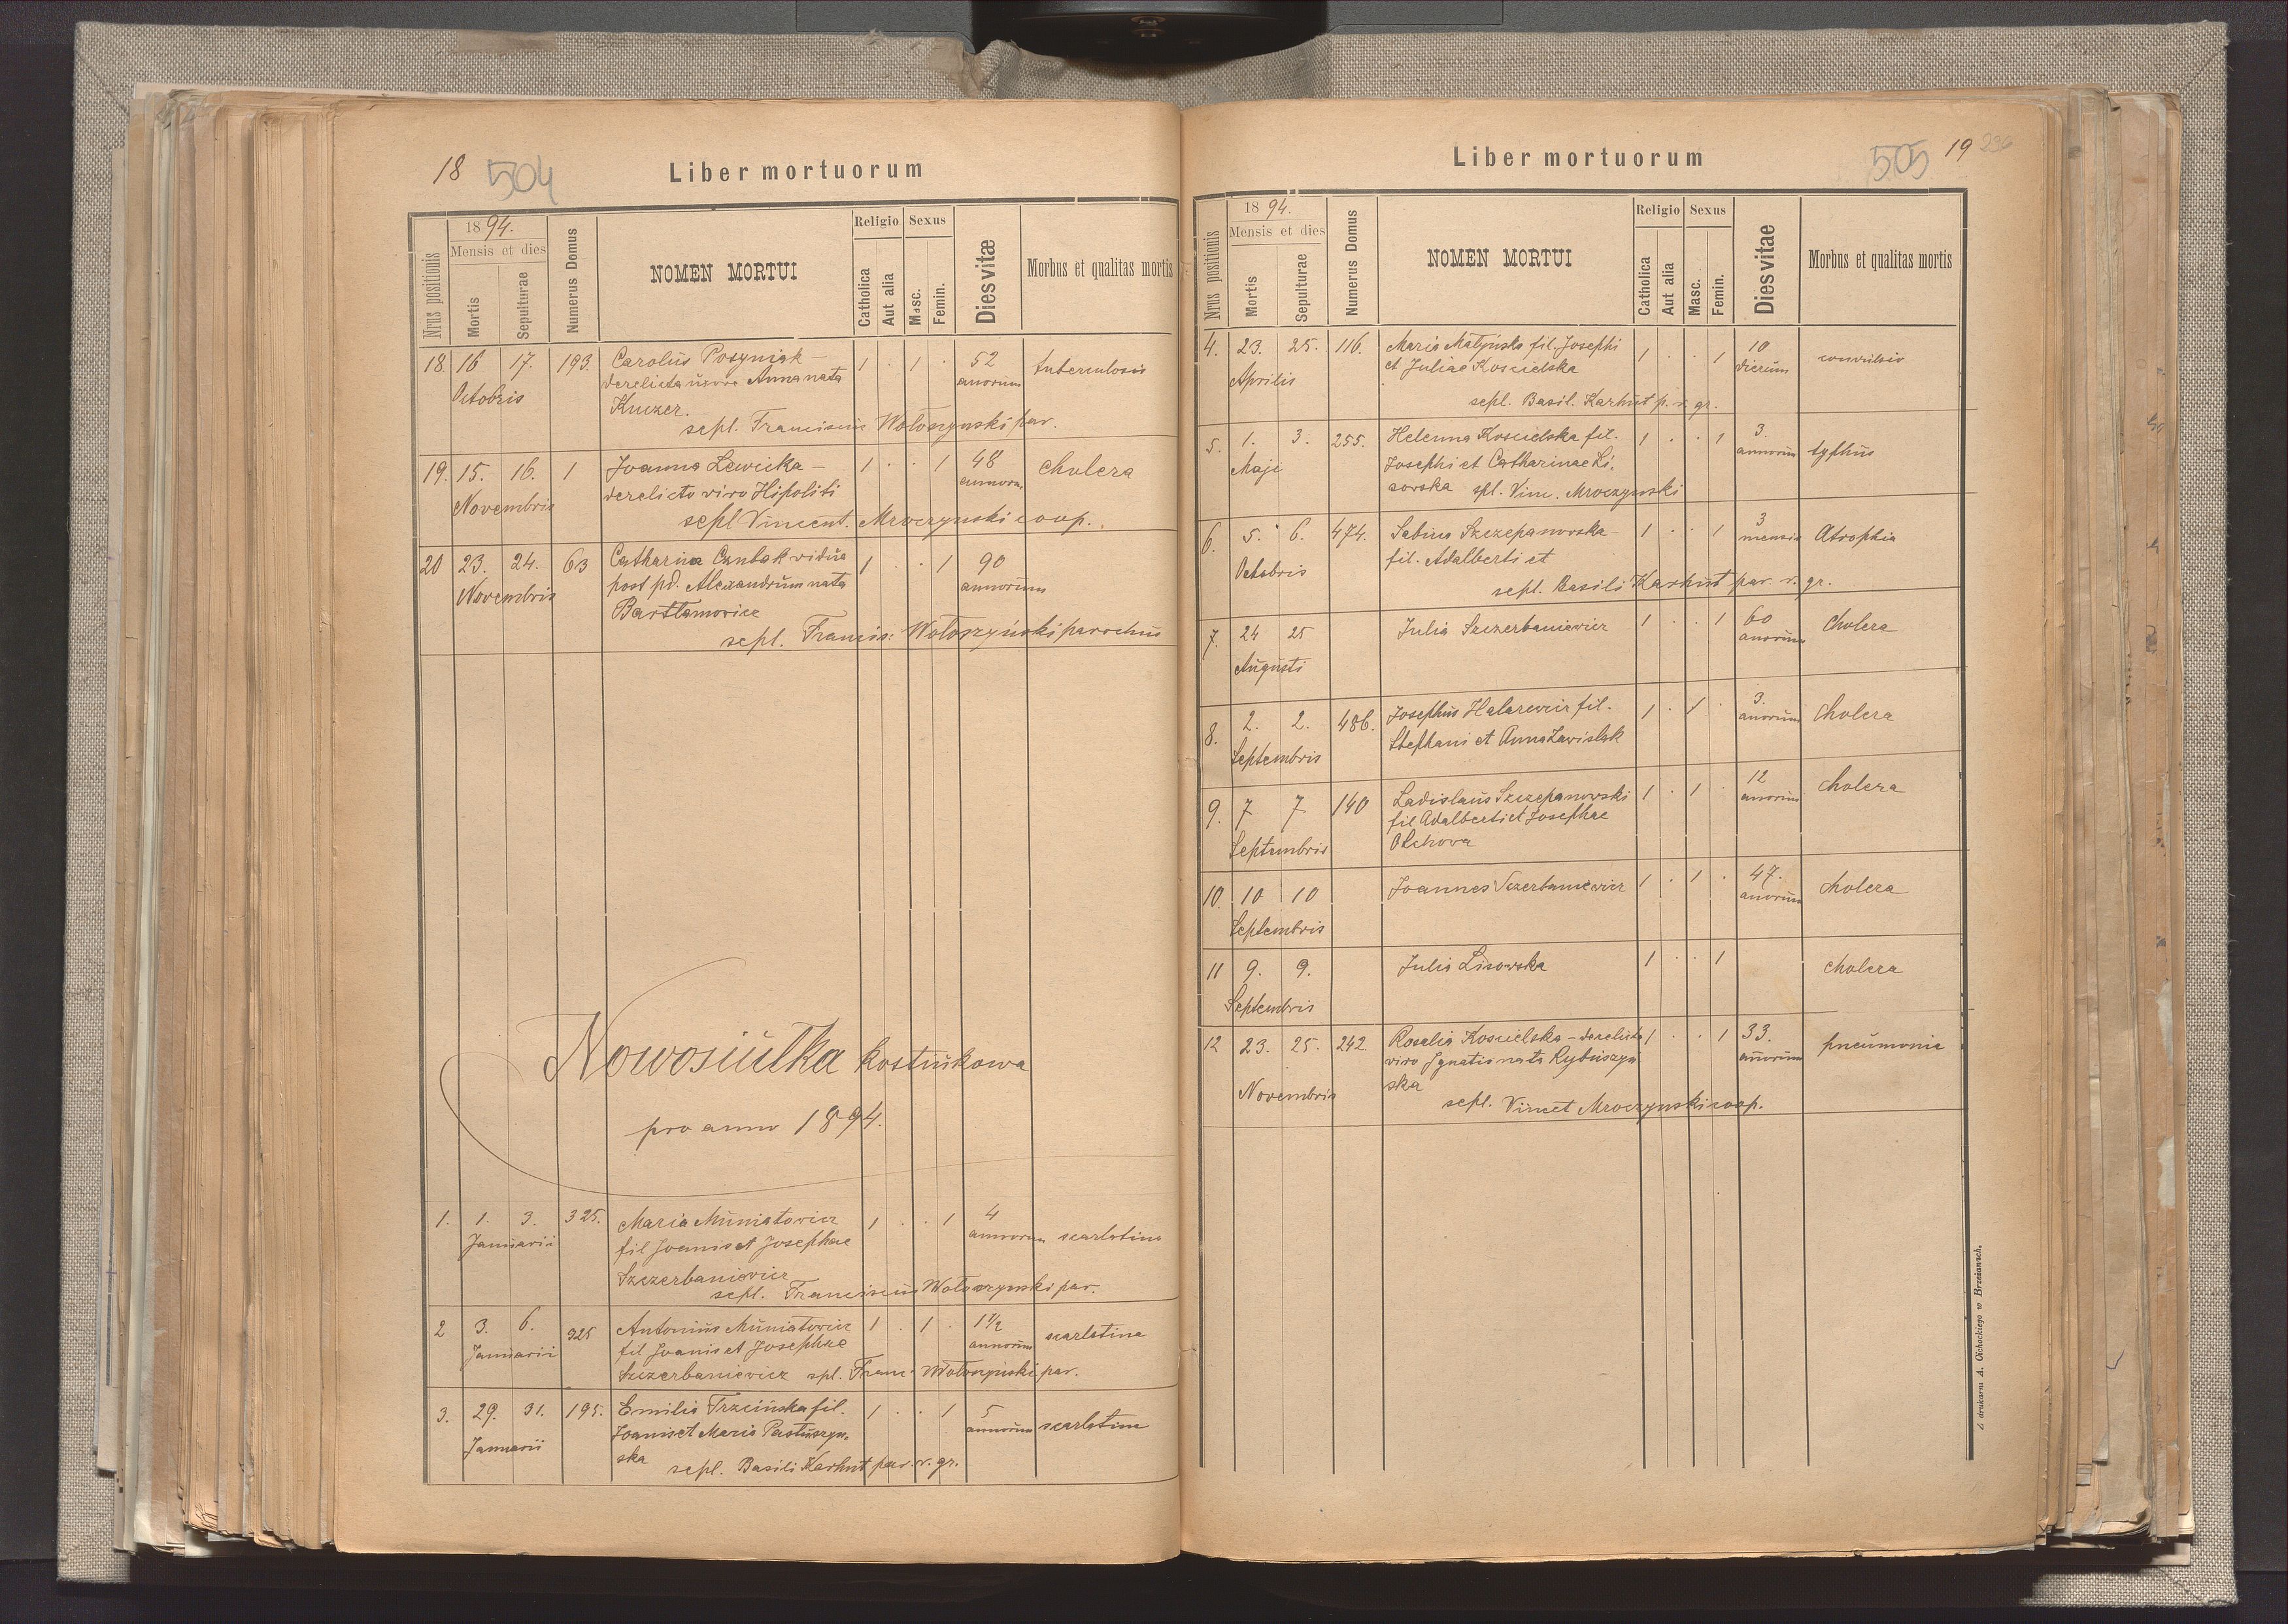 18 504
Liber mortuorum
Nrus positionis
1894.
Mensis et dies
Mortis
Sepulturae
Numerus Domus
NOMEN MORTUI
Religio
Catholica
Aut alia
Sexus
Masc.
Femin.
Dies vitæ
Morbus et qualitas mortis
18. 16 17. 193. Carolus Posyniak 1 . 1 . 52 tuberculosis
derelicta uxore Anna nata anorum
Octobris
Kuczer.
sepl. Franciscus Wołoszynski par.
19. 15. 16. 1 Joanna Lewicka – 1 . . 1 48 cholera
Novembris derelicto viro Hipoliti annorum
sepl Vincent. Mroczynski coop.
20 23. 24. 63 Catharina vidua 1 . . 1 90
Novembris post pd. Alexandrum nata annorum
Bartlamovicz
sepl. Francis: Wołoszyński parochus
Nowosiułka Kostiukowa
pro anno 1894.
1. 1. 3. 325. Maria Muniatovicz 1 . . 1 4
Januarii fil Joanis et Josephae annorum scarlatina
Szczerbaniewicz
sepl. Franciscus Wołoszynski par.
2 3. 6. 325 Antonius Muniatovicz 1 . 1 . 1 1/2 scarlatina
Januarii fil Joanis et Josephae annorum
Szczerbanievicz spl. Franc: Wołoszyński par.
3. 29. 31. 195. Emilia Trzcińska fil. 1 . . 1 5 scarlatina
Januarii Joanis et Maria Pastuszyn- annorum
ska sepl. Basili Karhut par. r. gr.
505 19 236
Liber mortuorum
Nrus positionis
1894.
Mensis et dies
Mortis
Sepulturae
Numerus Domus
NOMEN MORTUI
Religio
Catholica
Aut alia
Sexus
Masc.
Femin.
Dies vitae
Morbus et qualitas mortis
4. 23. 25. 116. Maria Małyńska fil. Josephi 1 . . 1 10 convulsio
Aprilis et Juliae Koscielska dierum
sepl. Basil. Karhut p. r. gr.
5. 1. 3. 255. Helenna Koscielska fil. 1 . . 1 3. typhus
Maji Josephi et Catharinae Li- annorum
sovska spl. Vinc. Mroczynski
6. 5. 6. 474. Sabina Szczepanovska 1 . . 1 3 Atrophia
Octobris fil. Adalberti et mensis
sepl. Basili Karhut par. r. gr.
7. 24 25 Julia Szczerbaniewicz 1 . . 1 60 Cholera
Augusti anorum
8. 2. 2. 486. Josephus Halarewicz fil. 1 . 1 . 3. cholera
Septembris Stephani et Anna Zawislak anorum
9. 7 7. 140 Ladislaus Szczepanowski 1 . 1 . 12 cholera
fil Adalberti et Josephae anorum
Septembris Olchova
10. 10 10 Joannes Sczerbaniewicz 1 . 1 . 47. cholera
Septembris anorum
11 9. 9. Julia Lisowska 1 . . 1 cholera
Septembris
12 23. 25. 242. Rosalia Koscielska – derelicto 1 . . 1 33. pneumonia
viro Ignatio nata Rybuszyn annorum
Novembris ska
sepl. Vincet Mroczynski coop.
Z drukarni A. Cichockiego w Brzeżanach.